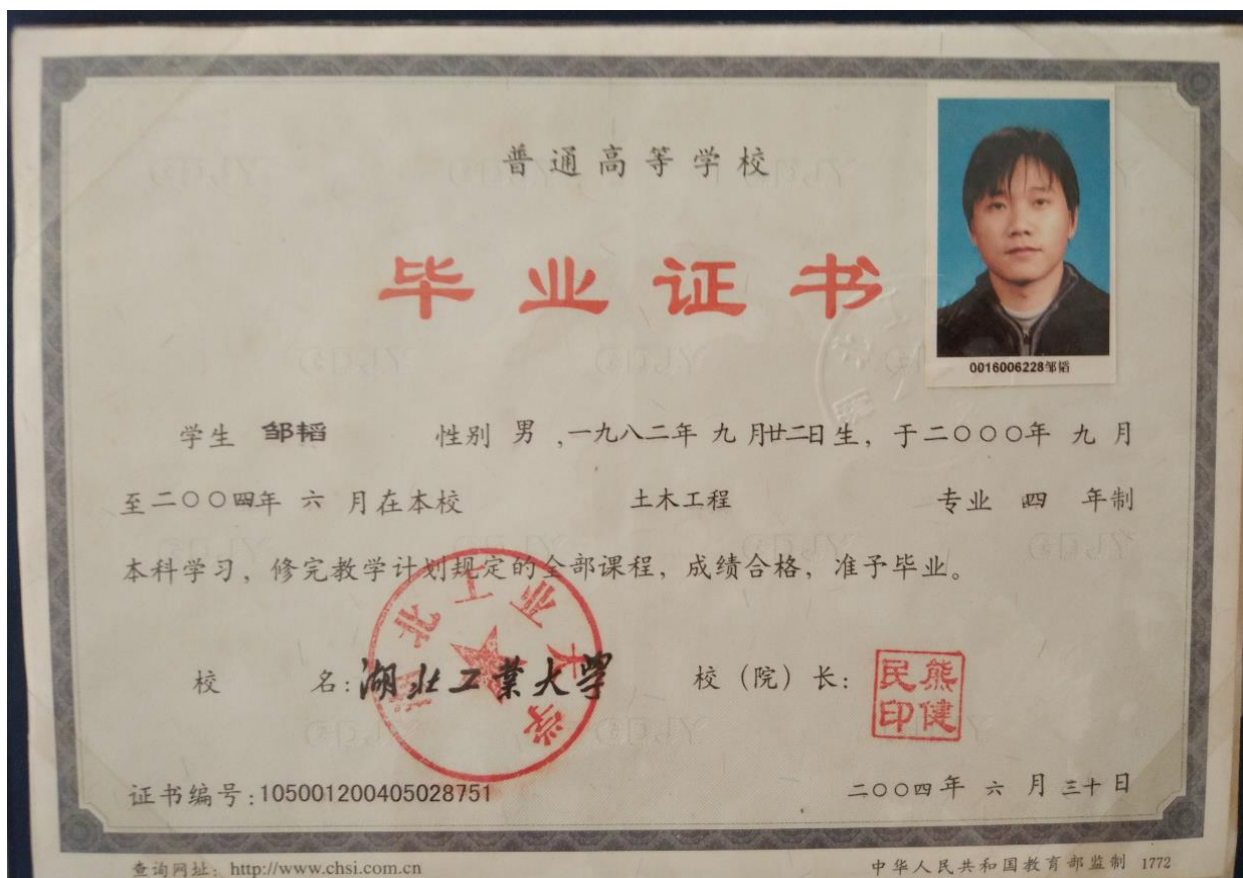 普通高等学校
毕业证书
0016006228邹韬
学生 邹韬 性别 男 ,一九八二年 九 月廿二日生，于二〇〇〇年 九 月
至二〇〇四年 六 月在本校 土木工程 专业 四 年制
本科学习，修完教学计划规定的全部课程，成绩合格，准予毕业。
校 名：湖北工業大學 校（院）长：
湖北工业大学
熊健民印
证书编号：105001200405028751 二〇〇四年 六 月 三十日
查询网址：http://www.chsi.com.cn 中华人民共和国教育部监制 1772